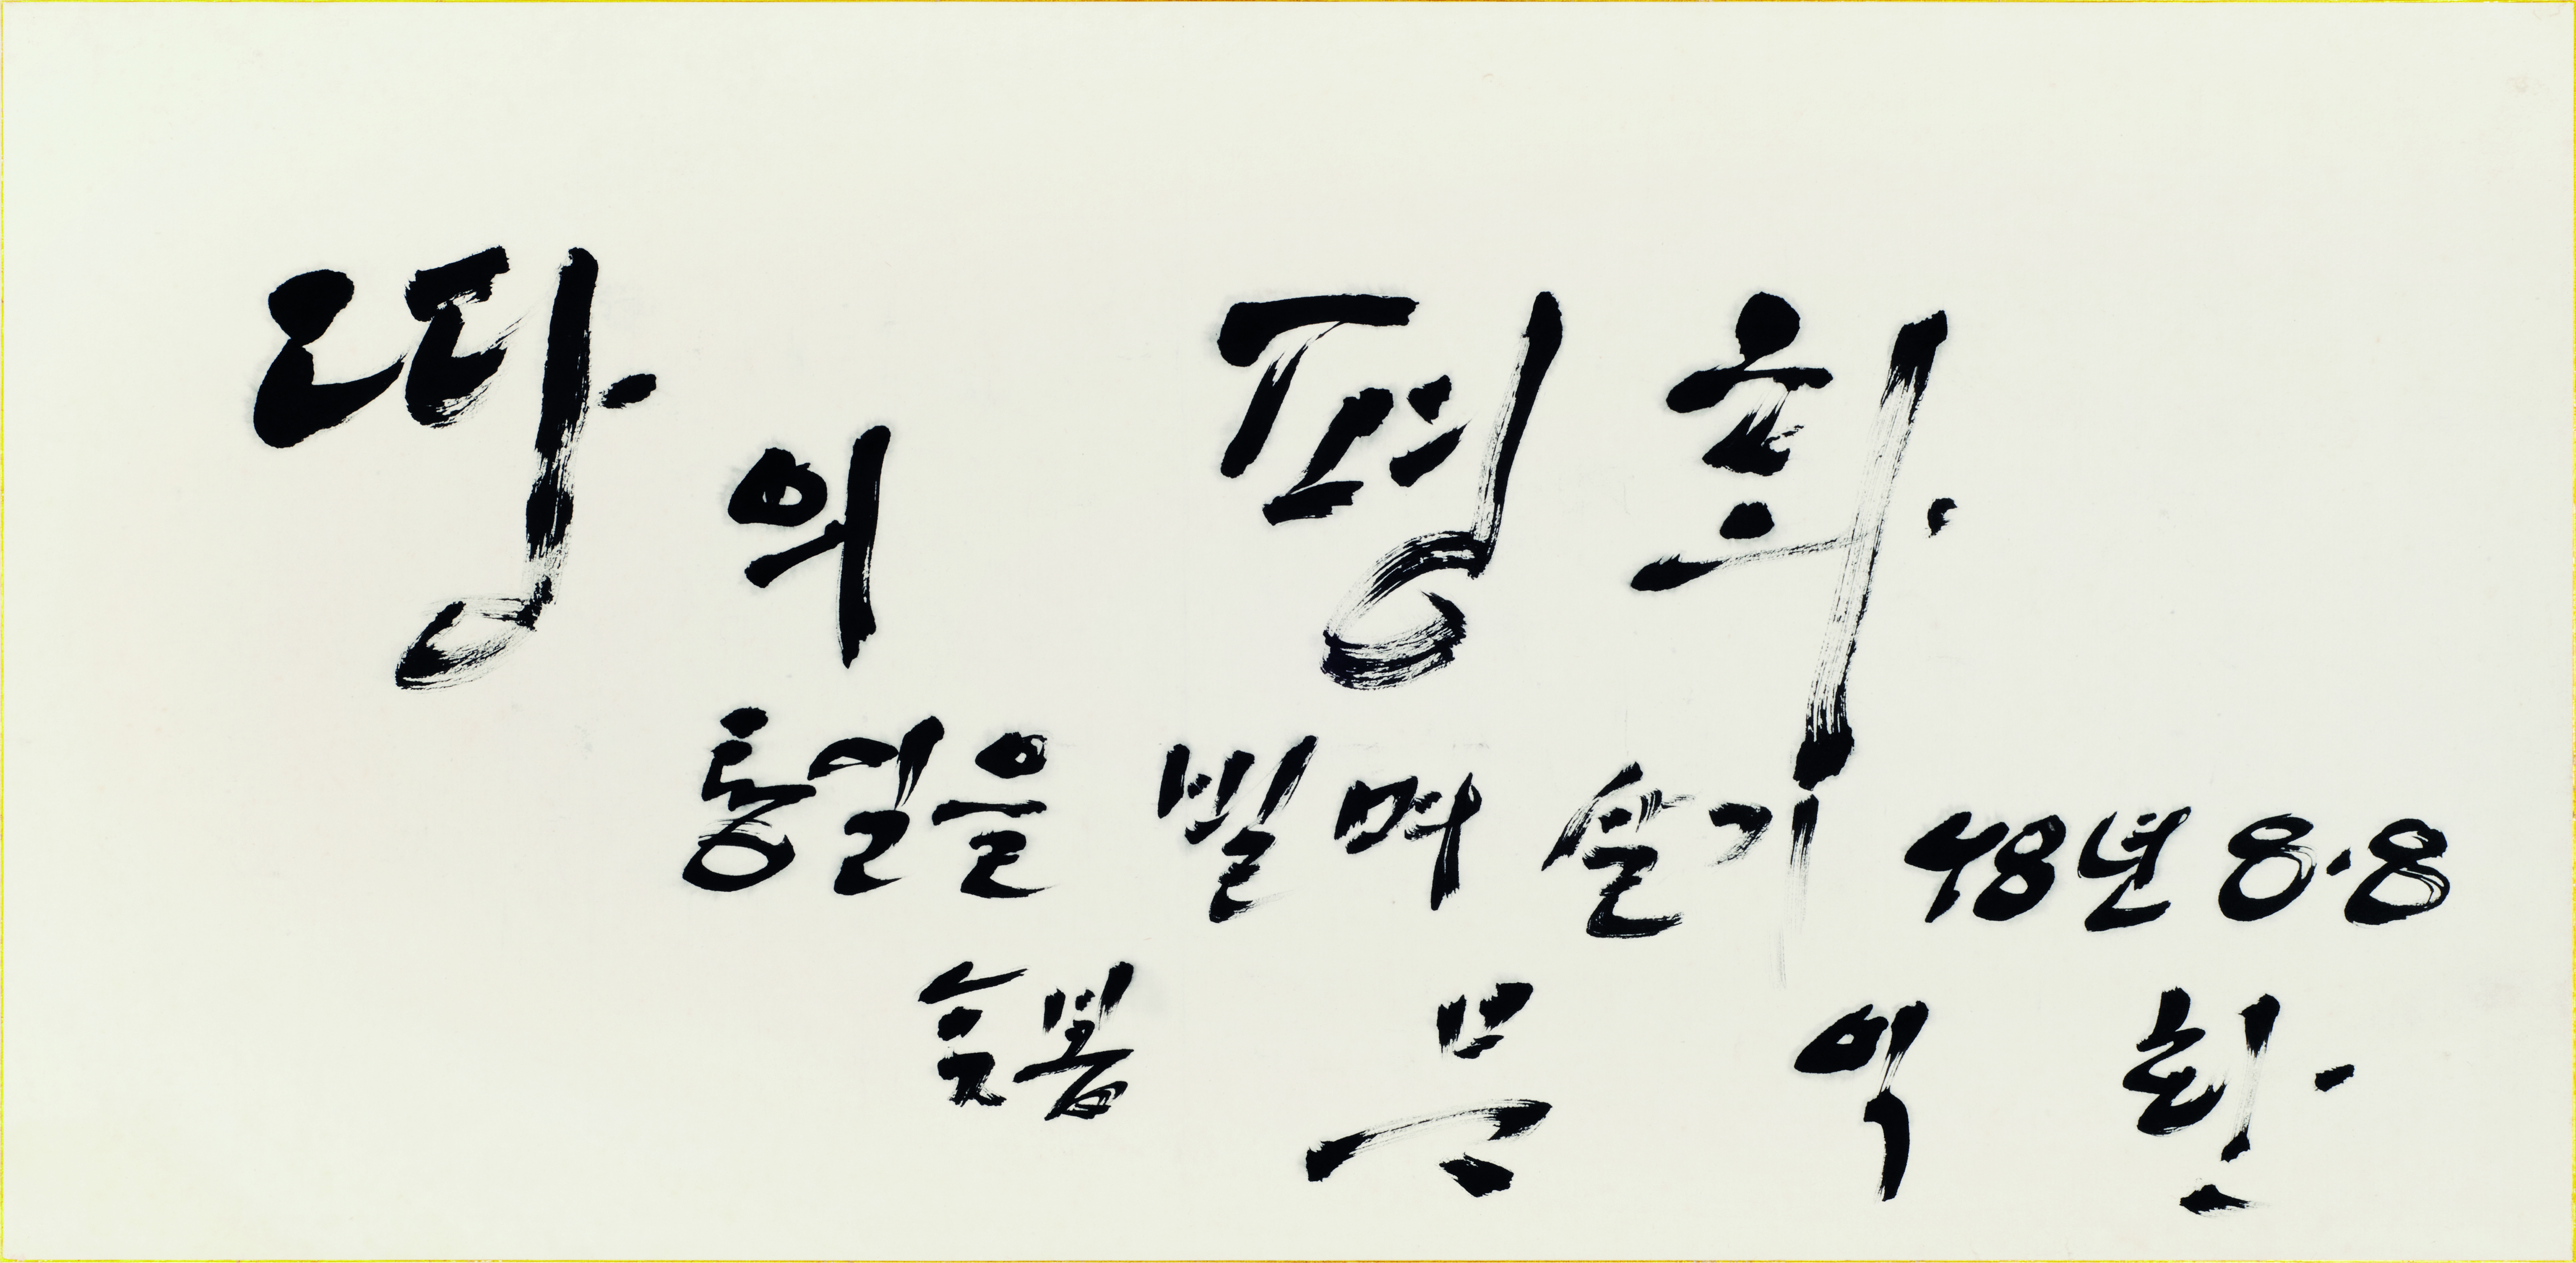 땅의 평화
통일을 빌며 살기 48년 8·8
늦봄 문 익 환